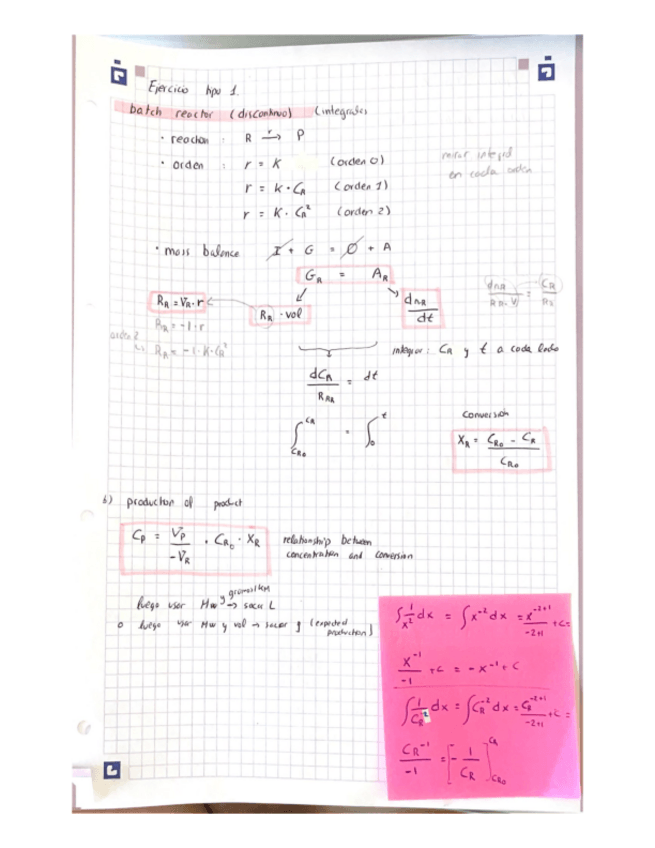 Ejercicio tipo 1.
batch reactor (discontinuo) (integrales)
· reaction : R →^r P
· orden : r = K (orden 0)
r = k · C_R (orden 1)
r = K · C_R^2 (orden 2)
mirar integral
en cada orden
· mass balance I + G = O + A
G_R = A_R
R_R = V_R · r
R_R · vol
dn_R / dt
R_R = -1 · r
orden 2
R_R = -1 · K · C_R^2
integrar : C_R y t a cada lado
dC_R / = dt
∫_{C_R0}^{C_R} = ∫_0^t
Conversion
X_R = (C_R0 - C_R) / C_R0
b) production of product
C_P = V_P / -V_R · C_R0 · X_R
relationship between
concentration and conversion
luego usar MW y → sacar L
o luego usar MW y vol → sacar g (expected
production)
∫ 1/x^2 dx = ∫ x^-2 dx = x^{-2+1} / -2+1 + C =
x^-1 / -1 + C = - x^-1 + C
∫ 1/C_R^2 dx = ∫ C_R^-2 dx = C_R^{-2+1} / -2+1 + C =
C_R^-1 / -1 = [- 1/C_R]_{C_R0}^{C_R}